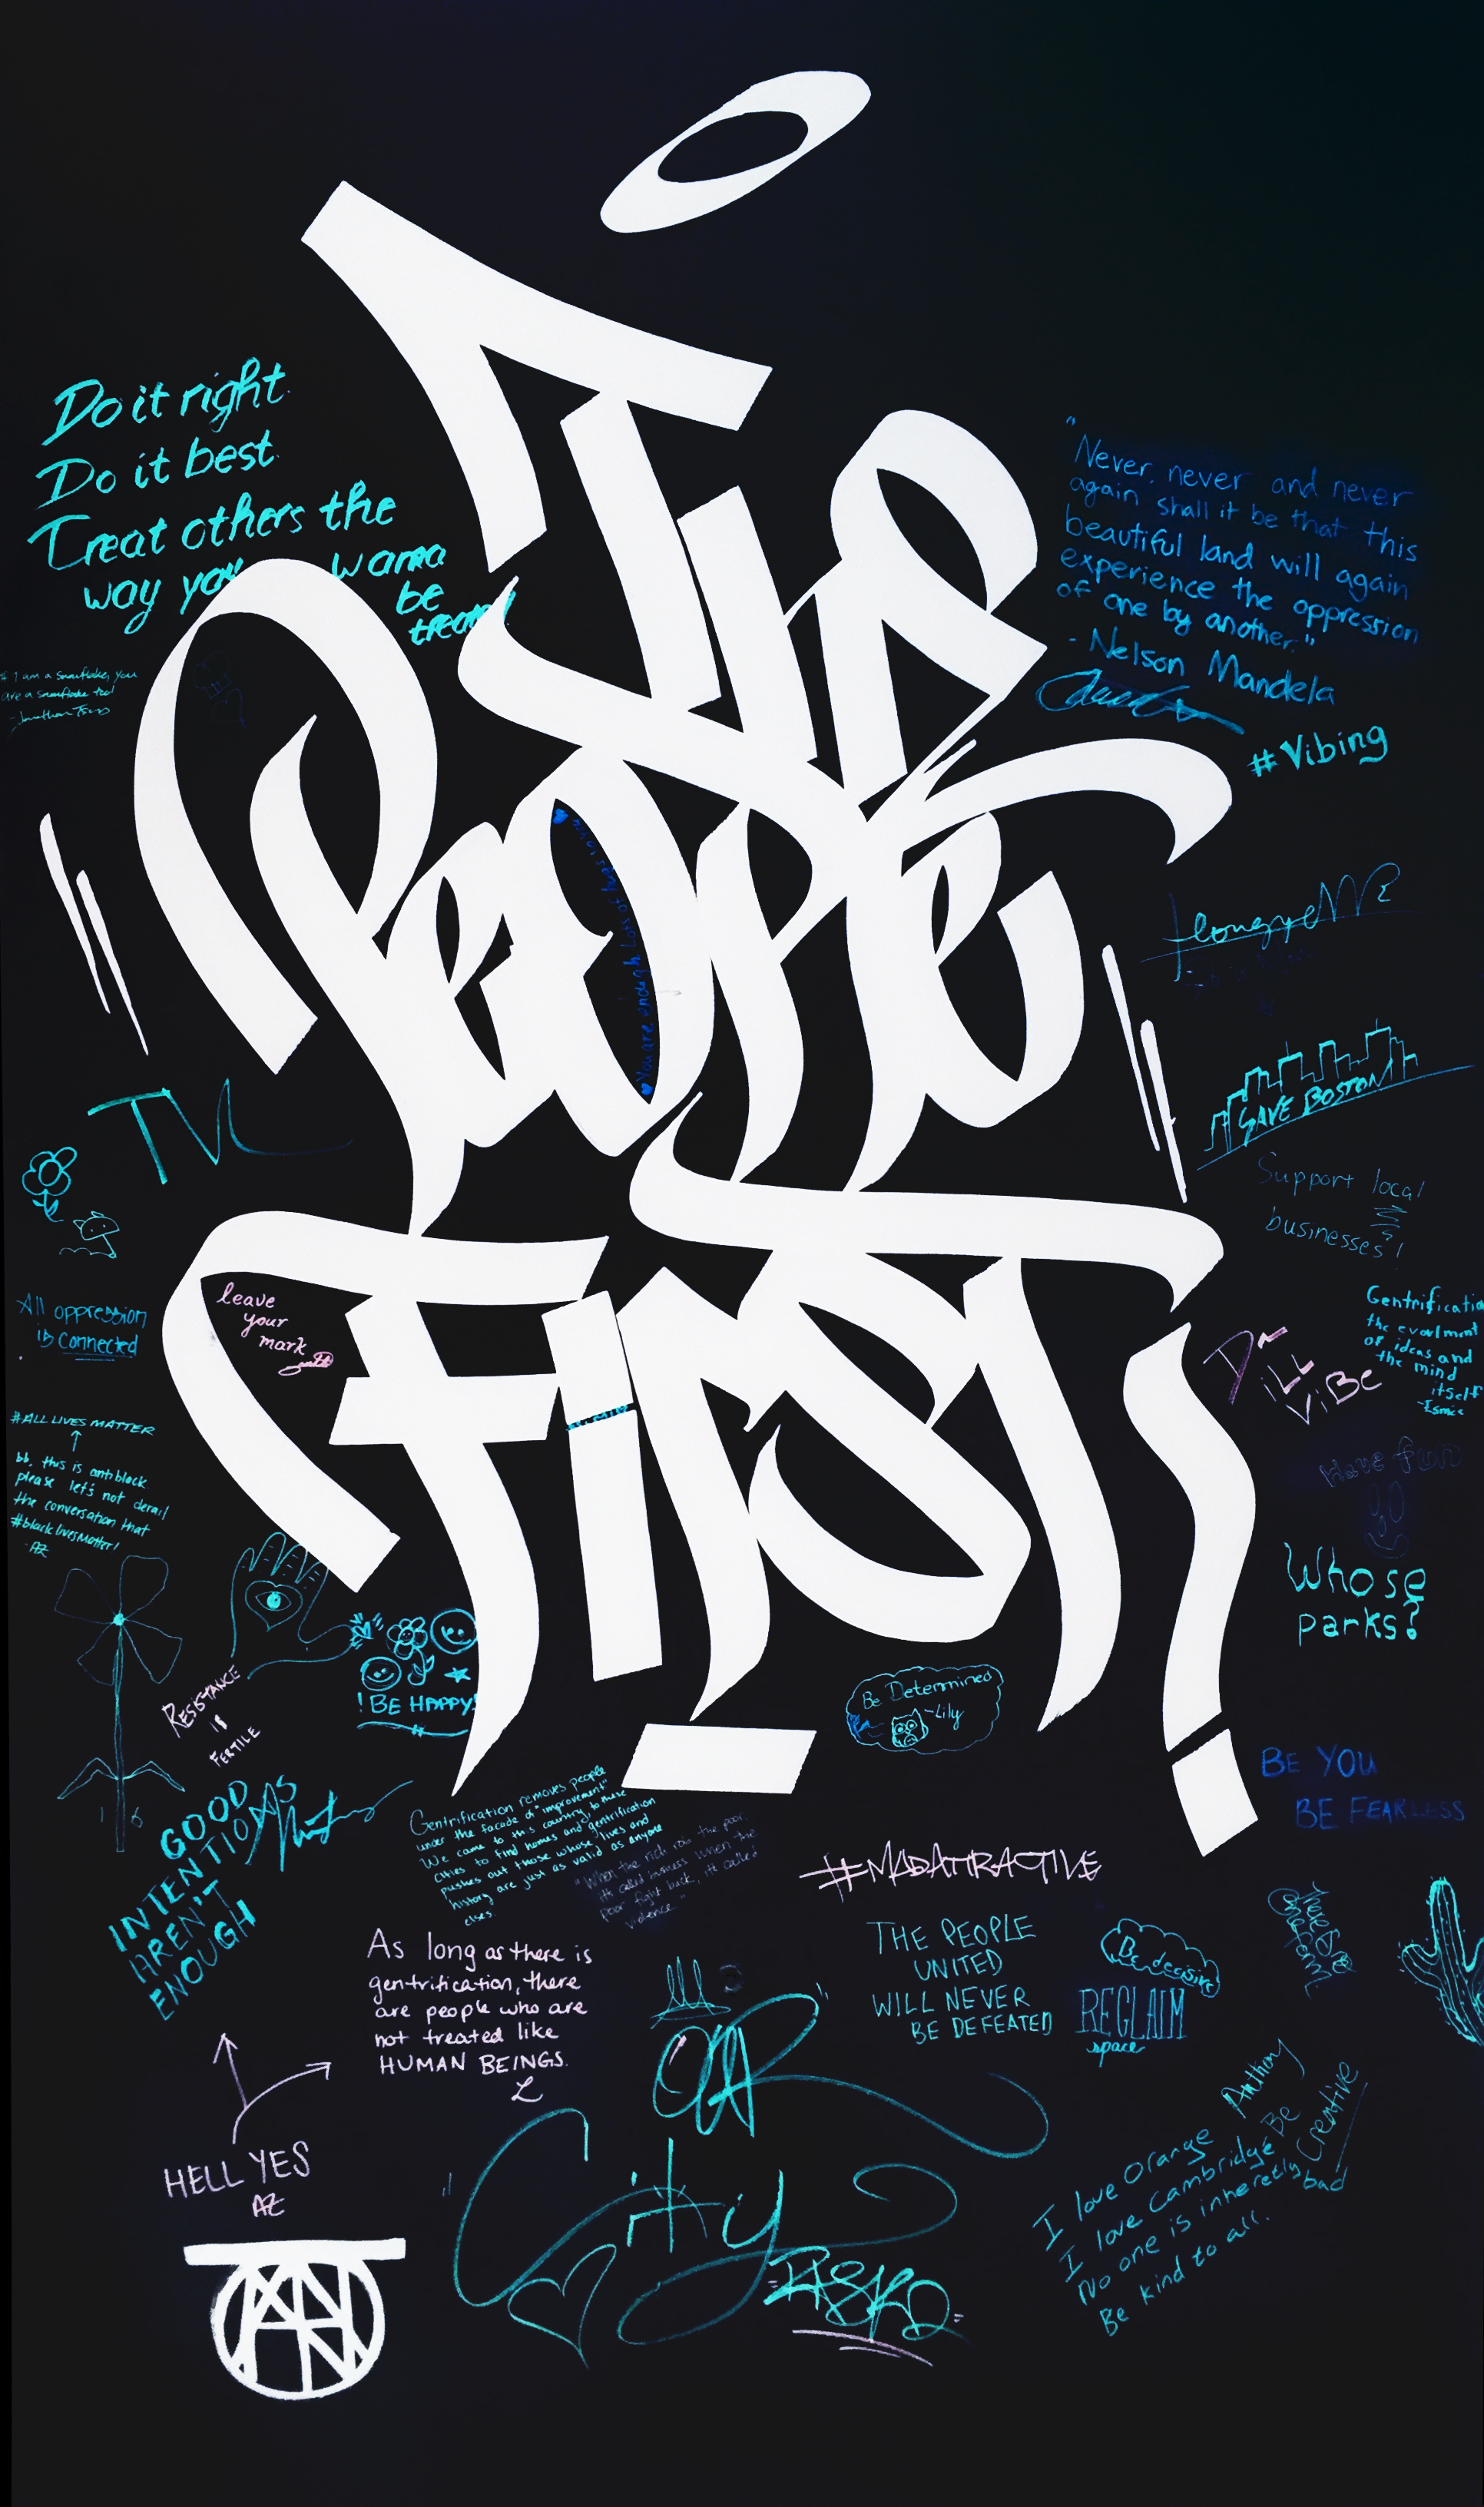 The
People
First
Do it right
Do it best
Treat others the
way you wanna
be
treated
"Never, never and never
again shall it be that this
beautiful land will again
experience the oppression
of one by another."
- Nelson Mandela
#Vibing
I am a snowflake, you
are a snowflake too!
You are enough. Lots of
SAVE BOSTON
Support local
businesses!
TM
All oppression
is connected
leave
your
mark
Gentrificatio
the evorlment
of ideas and
the mind
itself
ILL
ViBe
#ALL LIVES MATTER
bb, this is antiblack
please let's not derail
the conversation that
#blacklivesMatter!
AZ
Have fun
Whose
parks?
RESISTANCE
IS
FERTILE
! BE HAPPY!
Be Determined
-Lily
BE YOU
BE FEARLESS
GOOD
INTENTIONS
AREN'T
ENOUGH
Gentrification removes people
under the facade of "improvement"
We came to this country, to these
cities to find homes and gentrification
pushes out those whose lives and
history are just as valid as anyone
elses.
"When the rich rob the poor,
it's called business when the
poor fight back, it's called
violence."
#MADATTRACTIVE
As long as there is
gentrification, there
are people who are
not treated like
HUMAN BEINGS.
THE PEOPLE
UNITED
WILL NEVER
BE DEFEATED
Be decisive
RECLAIM
space
HELL YES
AZ
City
I love Orange
I love Cambridge
No one is inheretly bad
Be kind to all.
Anthony
Be
Creative